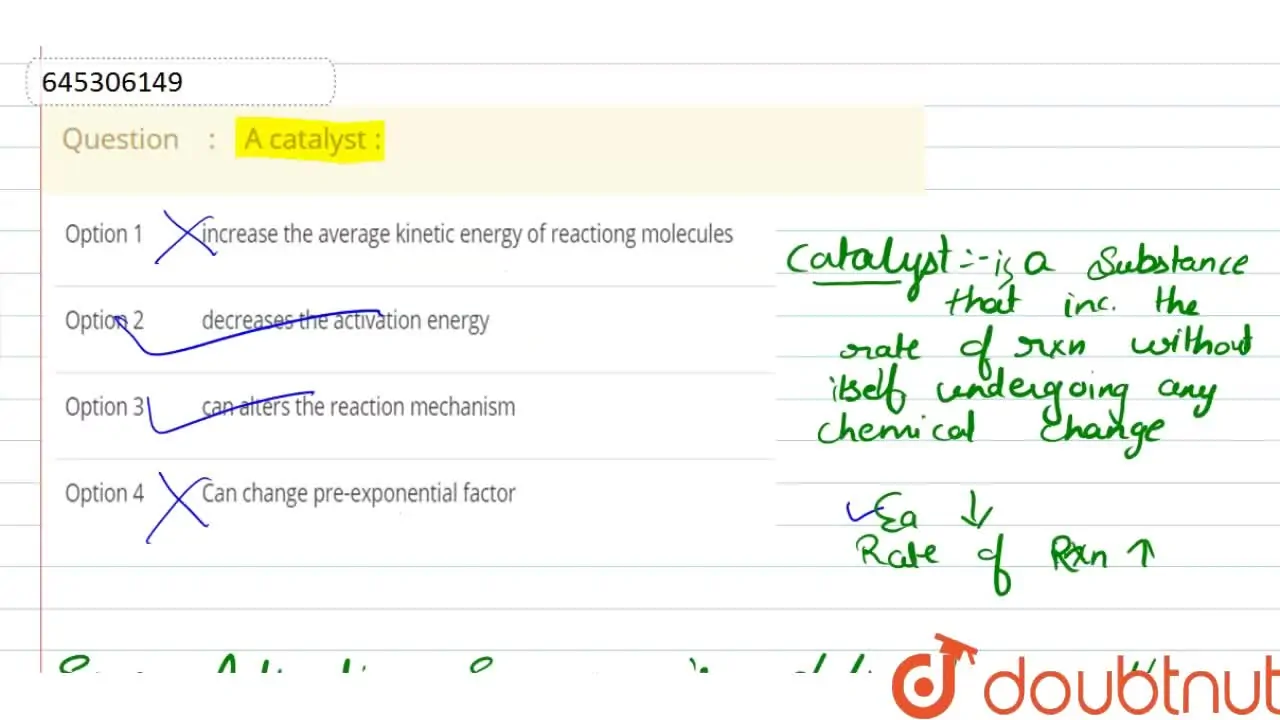 645306149
Question : A catalyst :
Option 1 increase the average kinetic energy of reactiong molecules
Option 2 decreases the activation energy
Option 3 can alters the reaction mechanism
Option 4 Can change pre-exponential factor
Catalyst :- is a Substance
that inc. the
rate of rxn without
itself undergoing any
chemical change
Ea ↓
Rate of Rxn ↑
doubtnut